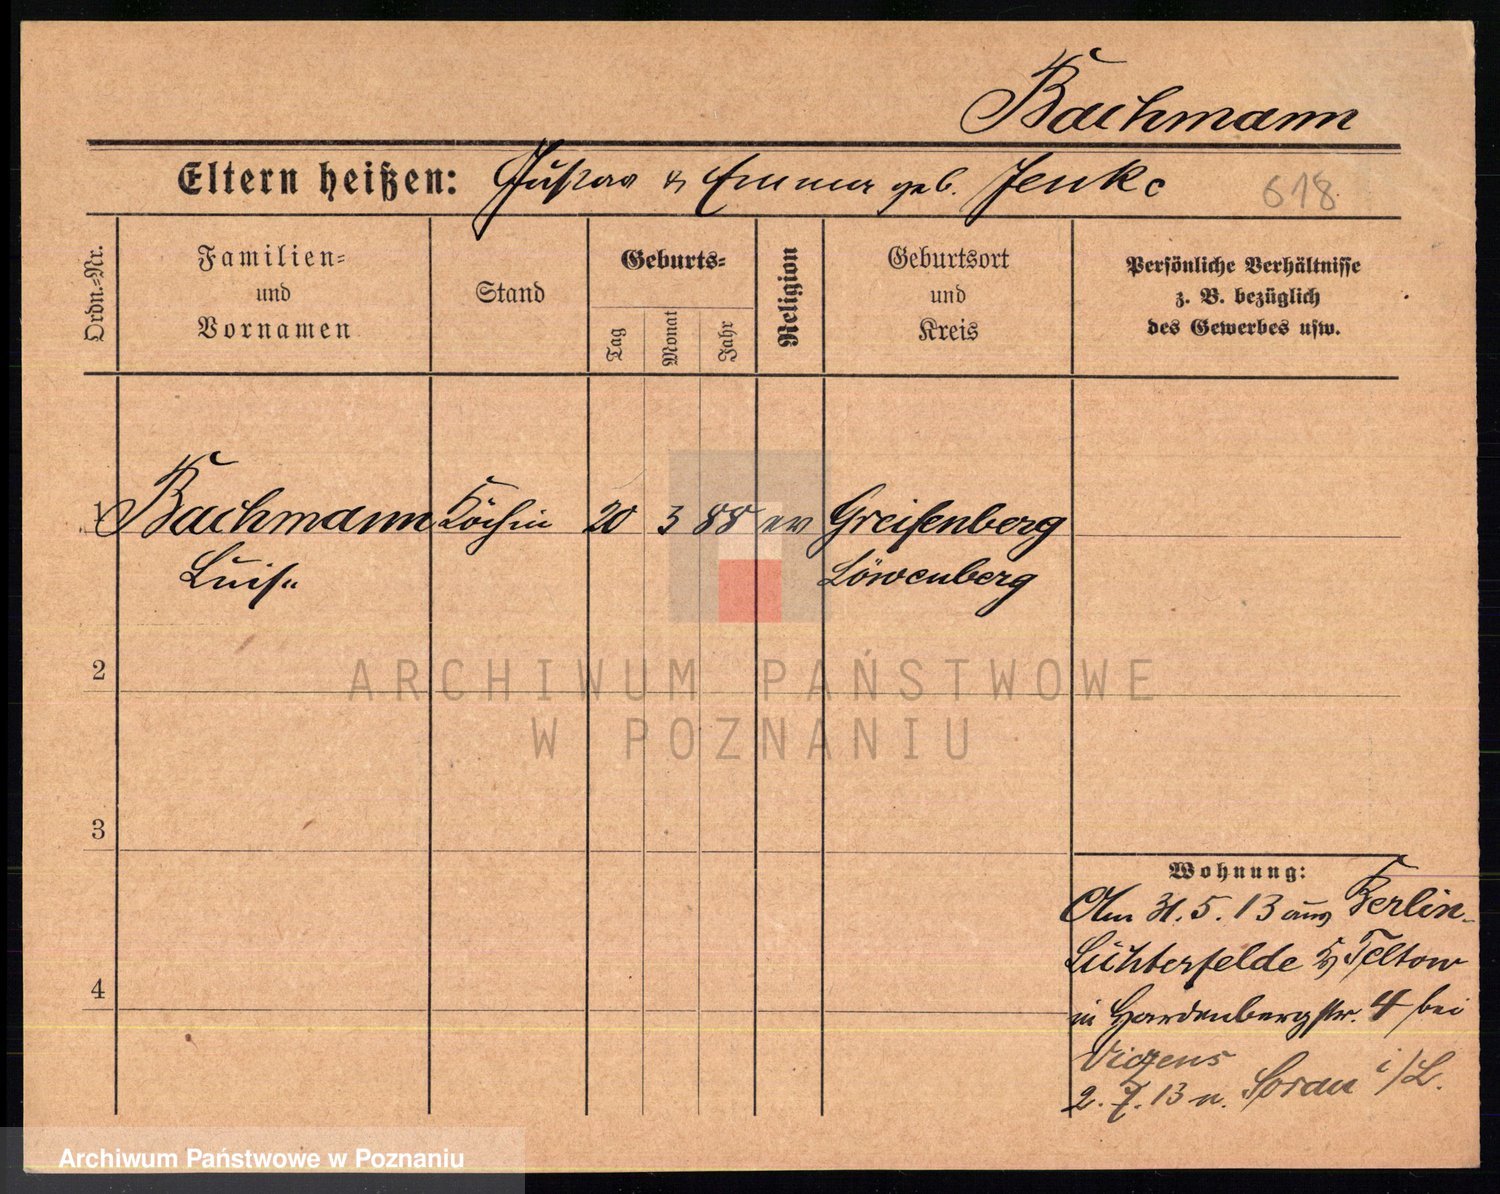 Bachmann
Eltern heißen: Gustav & Emma geb. Jenke
618
Ordn.-Nr.
Familien-
und
Vornamen
Stand
Geburts-
Tag
Monat
Jahr
Religion
Geburtsort
und
Kreis
Persönliche Verhältnisse
z. B. bezüglich
des Gewerbes usw.
1 Bachmann Köchin 20 3 88 ev Greifenberg
Luise Löwenberg
ARCHIWUM PAŃSTWOWE
W POZNANIU
2
3
4
Wohnung:
Am 31.5.13 aus Berlin-
Lichterfelde Teltow
in Hardenbergstr. 4 bei
2.7.13 n. Sorau i/L.
Archiwum Państwowe w Poznaniu